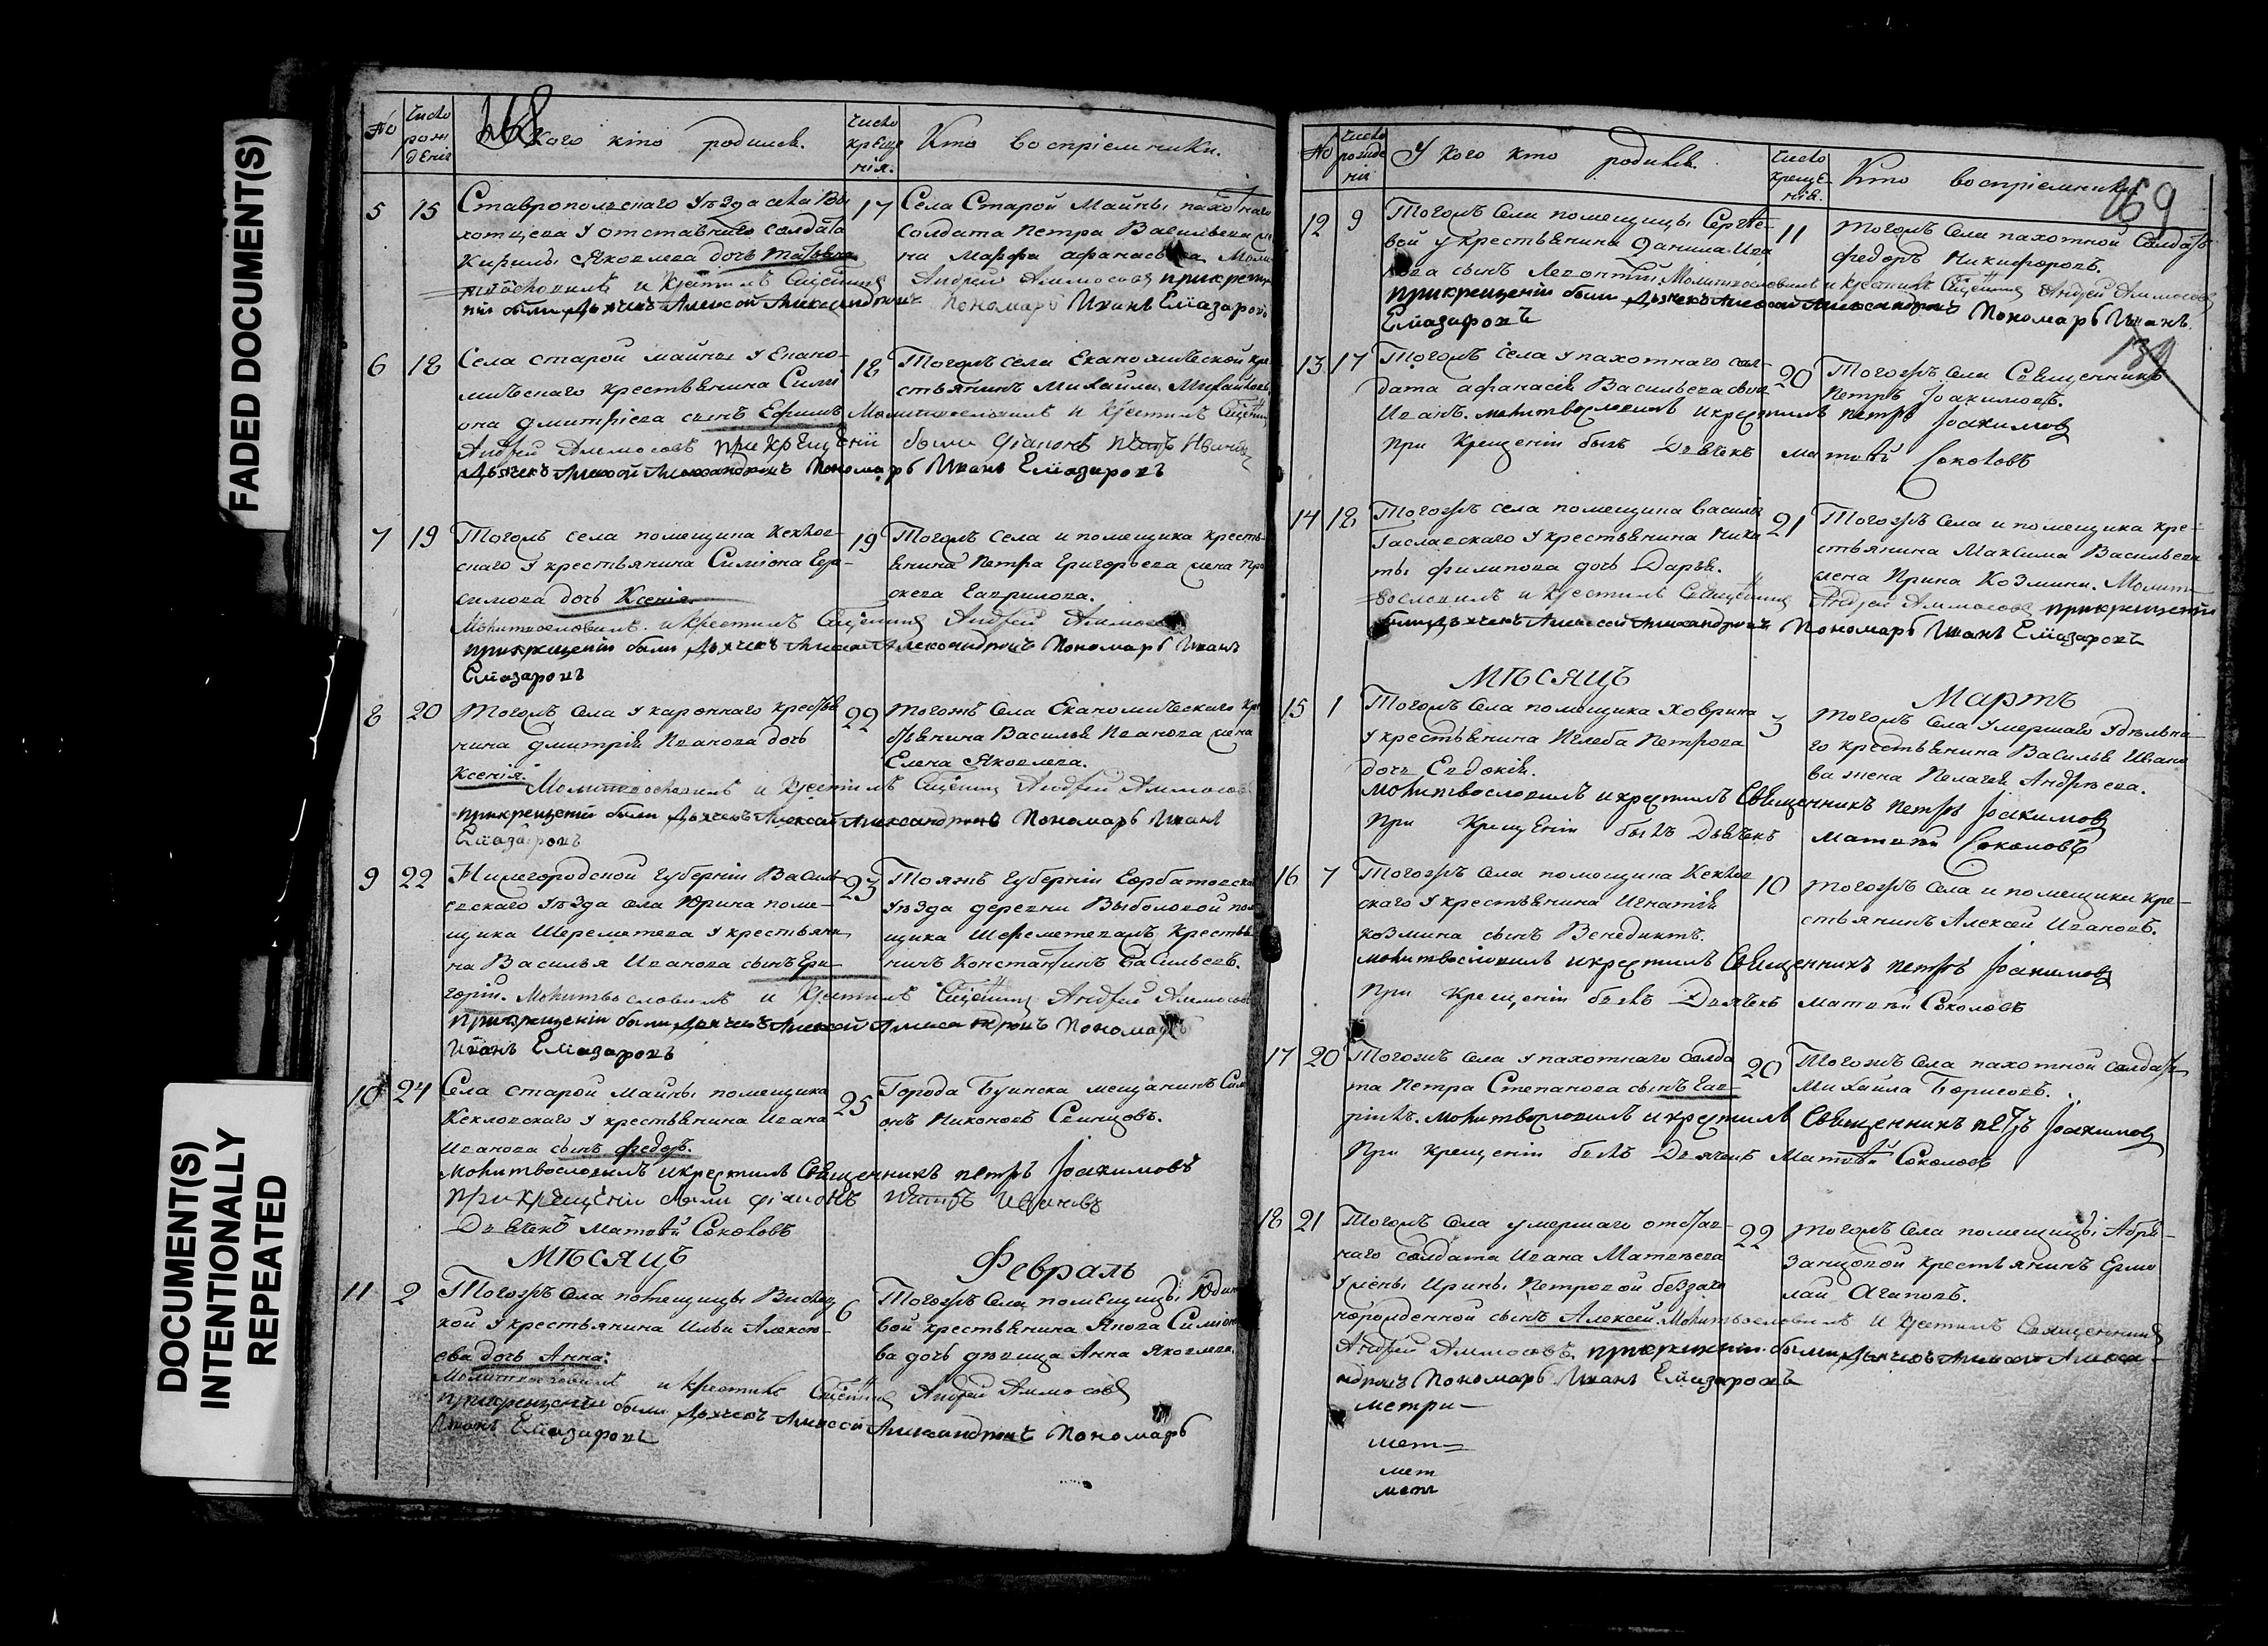 FADED DOCUMENT(S)
DOCUMENT(S)
INTENTIONALLY
REPEATED
168
№
Число рожденія
У кого кто родился.
Число крещенія.
Кто воспріемники.
5 15
Ставропольскаго уѣзда села
хотцева у отставнаго солдата
Кирилы Яковлева дочь Татьяна
молитвословилъ и крестилъ Священникъ
ніи были Дьячекъ Алексей Александровъ
17
Села Старой Майны пахотнаго
солдата Петра Васильева же
на Марфа Афанасьева
Андрей Аммосовъ при креще
Пономарь Иванъ Елиазаровъ
6 18
Села старой майны у Экано-
мическаго крестьянина Сими
она Дмитріева сынъ Ефимъ
Андрей Аммосовъ при крещеніи
Дьячекъ Алексей Александровъ Пономарь Иванъ Елиазаровъ
18
Тогожъ села Економической кре
стьянинъ Михайла Михайловъ
Молитвословилъ и крестилъ Священникъ
были Діаконъ Петръ Ивановъ
7 19
Тогожъ села помещика Кекков-
скаго у крестьянина Симіона Гера-
симова дочь Ксенія.
Молитвословилъ и крестилъ Священникъ Андрей Аммосовъ
при крещеніи были Дьячекъ Алексей Александровъ Пономарь Иванъ
Елиазаровъ
19
Тогожъ Села и помещика кресть-
янина Петра Григорьева жена Пра
сковья Гаврилова.
8 20
Тогожъ Села у казеннаго кресть
янина Дмитрія Иванова дочь
Ксенія. Молитвословилъ и крестилъ Священникъ Андрей Аммосовъ
при крещеніи были Дьячекъ Алексей Александровъ Пономарь Иванъ
Елиазаровъ
22
Тогожъ Села Економическаго кре
стьянина Василья Иванова жена
Елена Яковлева.
9 22
Нижегородской губерніи Василь
евскаго уѣзда села Юрина поме-
щика Шереметева у крестьяни
на Василья Иванова сынъ Гри-
горій. Молитвословилъ и крестилъ Священникъ Андрей Аммосовъ
при крещеніи были Дьячекъ Алексей Александровъ Пономарь
Иванъ Елиазаровъ
23
Тояжъ губерніи Горбатовска
уѣзда деревни Выболовой по
щика Шереметева крестья
нинъ Константинъ Васильевъ.
10 24
Села старой Майны помещика
Кекковскаго у крестьянина Ивана
Иванова сынъ Федоръ.
Молитвословилъ и крестилъ Священникъ Петръ Іоакимовъ
при крещеніи были Діаконъ Петръ Ивановъ
Дьячекъ Матвѣй Соколовъ
25
Города Буинска мещанинъ Сими
онъ Никоновъ Семцовъ.
Мѣсяцъ Февраль
11 2
Тогожъ Села помещицы
кой у крестьянина Ильи Алексе-
ева дочь Анна:
Молитвословилъ и крестилъ Священникъ Андрей Аммосовъ
при крещеніи были Дьячекъ Алексей Александровъ Пономарь
Иванъ Елиазаровъ
6
Тогожъ Села помещицы Юдин
вой крестьянина Якова Симіоно
ва дочь девица Анна Яковлева.
169
№
Число рожденія
У кого кто родился.
Число крещенія.
Кто воспріемники
12 9
Тогожъ Села помещицы Сергѣе-
вой у крестьянина Данила Ива
нова сынъ Леонтій. Молитвословилъ и крестилъ Священникъ Андрей Аммосовъ
при крещеніи были Дьячекъ Алексей Александровъ Пономарь Иванъ
Елиазаровъ
11
Тогожъ Села пахотной Солдатъ
Федоръ Никифоровъ.
139
13 17
Тогожъ села у пахотнаго сол-
дата Афанасія Васильева сынъ
Иванъ. Молитвословилъ и крестилъ Петръ Іоакимовъ
При крещеніи былъ Дьячекъ Матвѣй Соколовъ
20
Тогожъ Села Священникъ
Петръ Іоакимовъ.
14 18
Тогожъ села помещика Василья
Гаславскаго у крестьянина Ники
ты Филипова дочь Дарья.
вословилъ и крестилъ Священникъ Андрей Аммосовъ при крещеніи
были Дьячекъ Алексей Александровъ Пономарь Иванъ Елиазаровъ
21
Тогожъ Села и помещика кре-
стьянина Максима Васильева
жена Ирина Козмина. Молит-
Мѣсяцъ Мартъ
15 1
Тогожъ Села помещика Ховрина
у крестьянина Глеба Петрова
дочь Евдокія.
Молитвословилъ и крестилъ Священникъ Петръ Іоакимовъ
При крещеніи былъ Дьячекъ Матвѣй Соколовъ
3
Тогожъ Села умершаго удѣльна-
го крестьянина Василья Ивано
ва жена Пелагея Андрѣева.
16 7
Тогожъ Села помещика Кекков
скаго у крестьянина Игнатія
Козмина сынъ Венедиктъ.
Молитвословилъ и крестилъ Священникъ Петръ Іоакимовъ
При крещеніи былъ Дьячекъ Матвѣй Соколовъ
10
Тогожъ Села и помещика кре-
стьянинъ Алексей Ивановъ.
17 20
Тогожъ Села у пахотнаго солда
та Петра Степанова сынъ Гав-
ріилъ. Молитвословилъ и крестилъ Священникъ Петръ Іоакимовъ
При крещеніи былъ Дьячекъ Матвѣй Соколовъ
20
Тогожъ Села пахотной солдатъ
Михайла Борисовъ.
18 21
Тогожъ Села умершаго отстав-
наго солдата Ивана Матвѣева
у жены Ирины Петровой беззако
норожденной сынъ Алексей. Молитвословилъ и крестилъ Священникъ
Андрей Аммосовъ при крещеніи были Дьячекъ Алексей Алекса-
ндровъ Пономарь Иванъ Елиазаровъ
22
Тогожъ Села помещицы Абря-
занцовой крестьянинъ Ермо
лай Агаповъ.
метри-
мет=
мет
мет